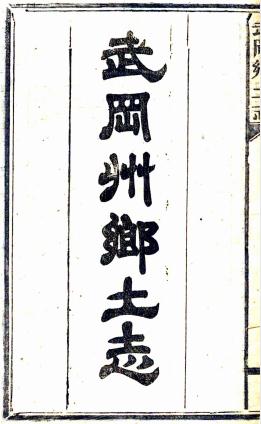 武岡州鄉土志
武岡鄉土志